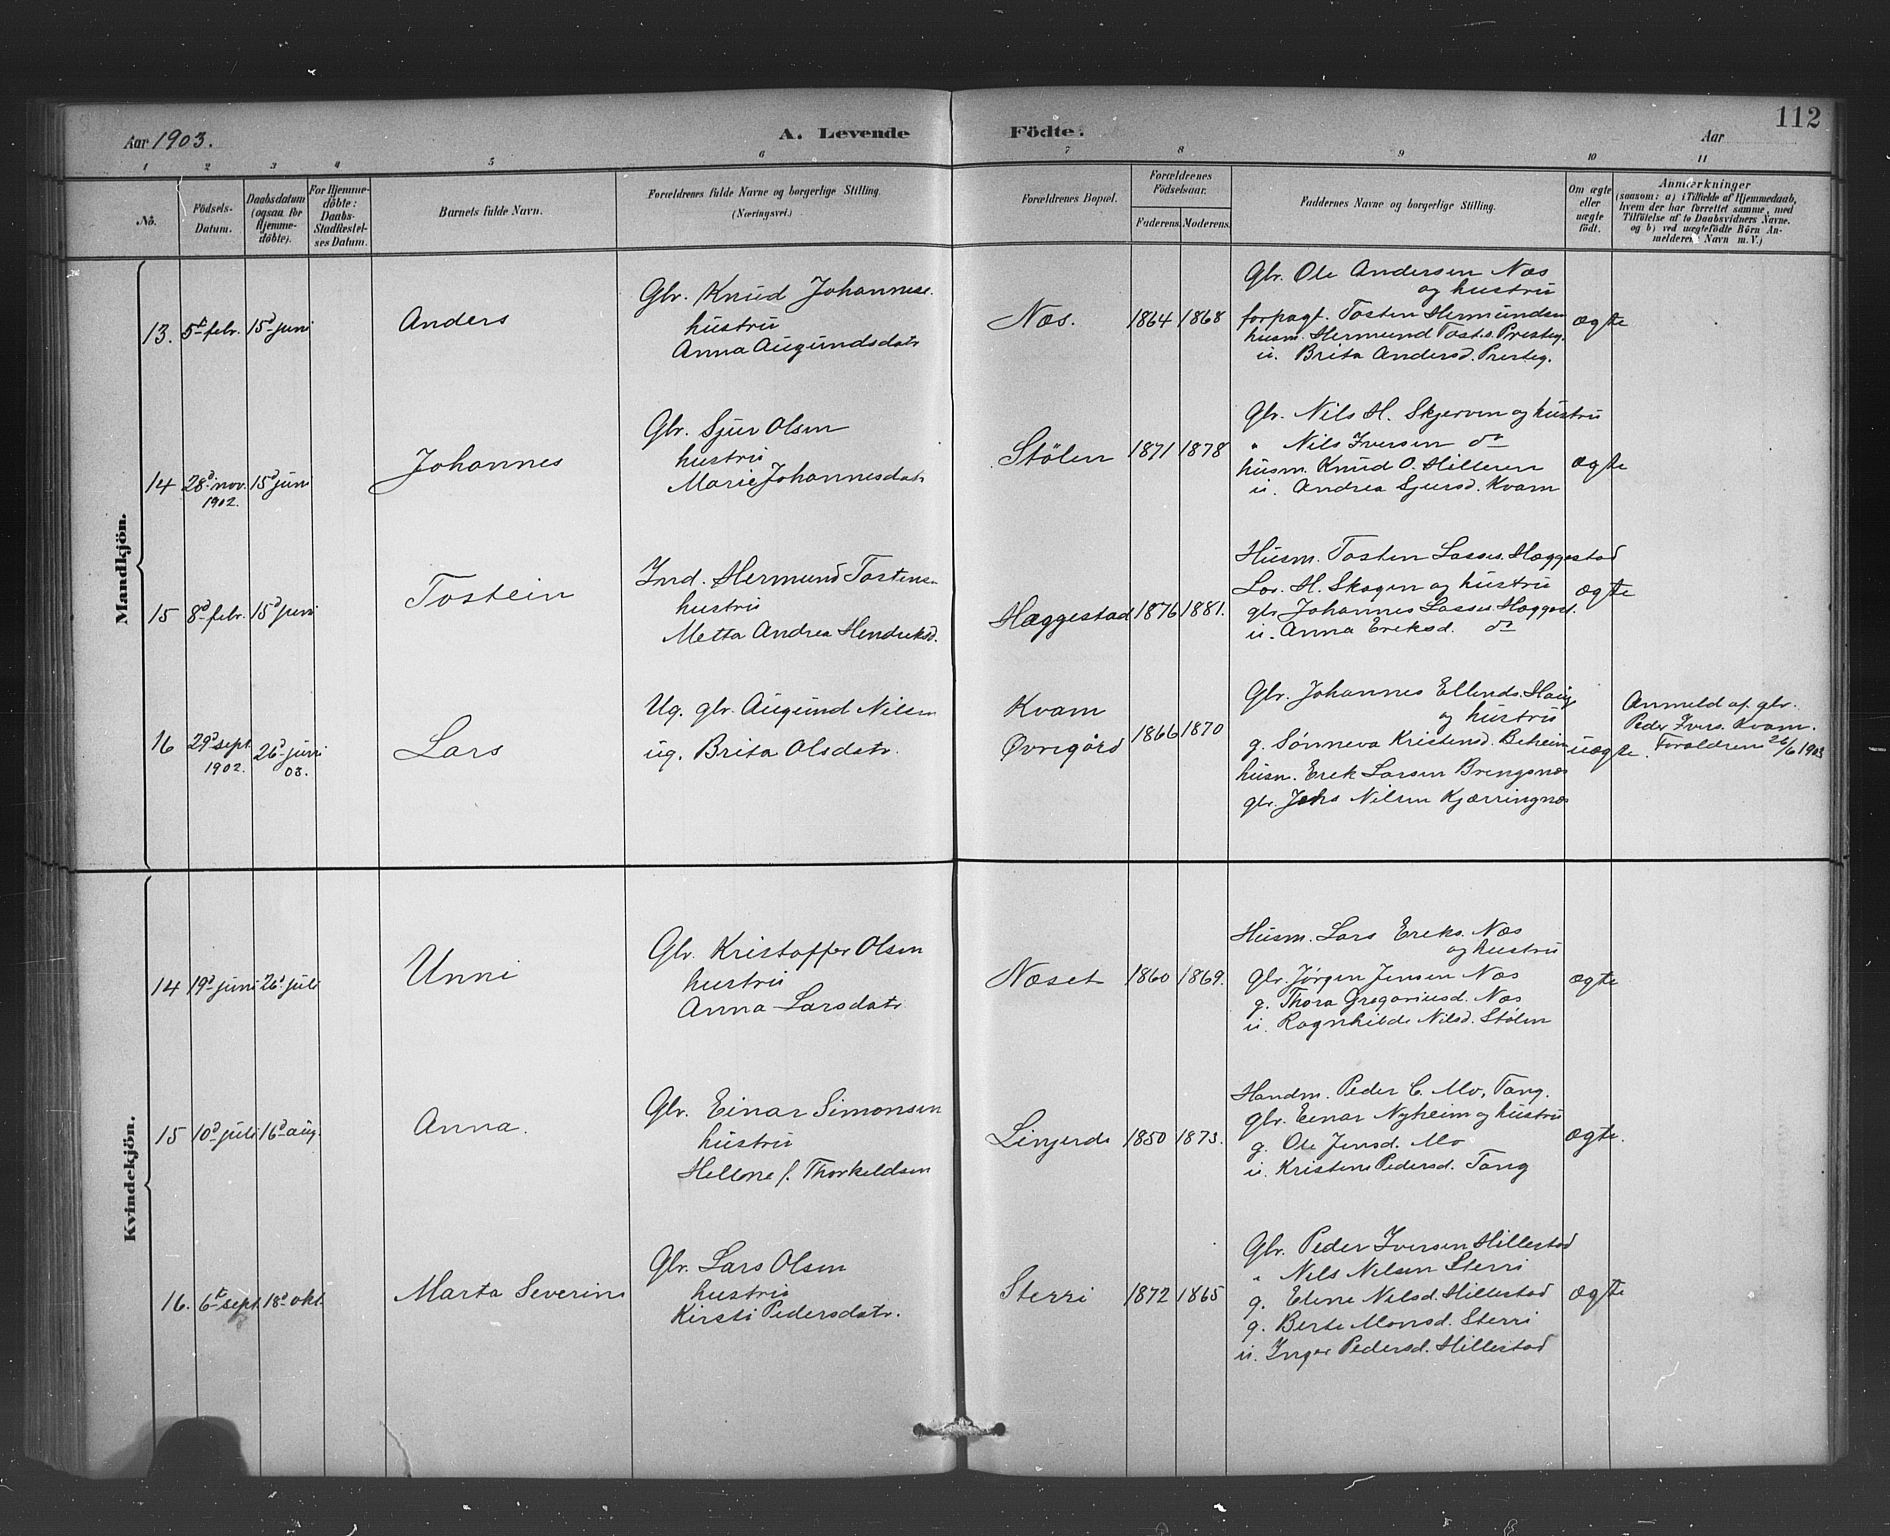 112
Aar 1903.
A. Levende Födte.
Aar
1 2 3 4 5 6 7 8 9 10 11
No.
Födsels-
Datum.
Daabsdatum
(ogsaa for
Hjemme-
döbte).
For Hjemme-
döbte:
Daabs-
Stadfæstel-
ses Datum.
Barnets fulde Navn.
Forældrenes fulde Navne og borgerlige Stilling.
(Næringsvei.)
Forældrenes Bopæl.
Forældrenes
Födselsaar.
Faderens. Moderens.
Faddernes Navne og borgerlige Stilling.
Om ægte
eller
uægte
født.
Anmærkninger
(saasom: a) i Tilfælde af Hjemmedaab,
hvem der har forrettet samme, med
Tilföielse af to Daabsvidners Navne.
og b) ved uægtefödte Börn An-
melderens Navn m. V.)
Mandkjön.
13. 5t febr. 15d juni
Anders
Gbr. Knud Johannese.
hustru
Anna Augundsdatr
Næs.
1864 1868
Gbr. Ole Andersen Næs
og hustru
forpagt. Tosten Hermundsen
husm. Hermund Tosts. Presteg.
u. Brita Andersd. Presteg.
ægte
14 28d nov. 15d juni
1902.
Johannes
Gbr. Sjur Olsen
hustru
Marie Johannesdatr
Stölen
1871 1878
Gbr. Nils H. Skjerven og hustru
" Nils Iversen do
husm. Knud O. Hilleren
u. Andrea Sjursd. Kvam
ægte
15 8d febr. 15d juni
Tostein
Ind. Hermund Tostensn
hustru
Metta Andrea Hendriksd.
Hæggestad
1876 1881.
Husm. Tosten Lasses. Hæggestad
Los. H. Skogen og hustru
gbr Johannes Lasses. Hæggest.
u. Anna Ereksd. do
ægte
16 29d sept. 26d juni
1902. 03.
Lars
Ug. gbr. Augund Nilsen
ug. Brita Olsdatr.
Kvam
Øvregård
1866 1870
Gbr. Johannes Ellends. Haug
og hustru
g. Sønneva Kristensd. Beheim
husm. Erek Larsen Brengsnæs
gbr. Johs Nilsen Kjærringnæs
uægte
Anmeld af gbr.
Peder Ivers. Kvam.
Forældrene 26/6 1903
Kvindekjön.
14 19d juni 26d juli
Unni
Gbr. Kristoffer Olsen
hustru
Anna Larsdatr
Næset
1860 1869.
Husm. Lars Ereks. Næs
og hustru
gbr. Jörgen Jensen Næs
g. Thora Gregoriusd. Næs
u. Ragnhilde Nilsd. Stølen
ægte
15 10d juli 16d aug.
Anna.
Gbr. Einar Simonsen
hustru
Hellene f. Thorkeldsen
Linjerde
1850 1873.
Handm. Peder C. Mo, Tang.
gbr. Einar Nyheim og hustru
g. Ole Jensd. Mo
u. Kristens Pedersd. Tang
ægte.
16. 6t sept. 18d okt.
Marta Severine
Gbr. Lars Olsen
hustru
Kirsti Pedersdatr.
Sterri
1872 1865
Gbr. Peder Iversen Hillestad
" Nils Nilsen Sterri
g. Eline Nilsd. Hillestad
g. Berte Monsd. Sterri
u. Inger Pedersd. Hillestad
ægte